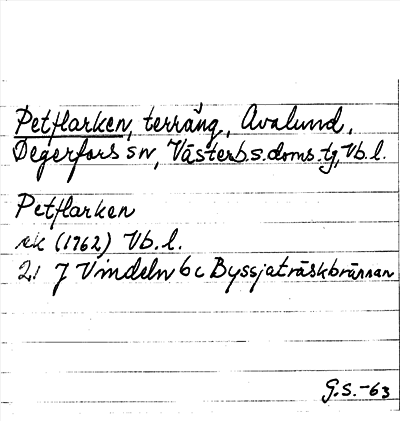 Petflarken, terräng, Avalund,
Degerfors sn, Västerb.s.doms.tg, Vb.l.
Petflarken
ek (1962) Vb.l.
21 J Vindeln 6c Byssjaträskbrännan
G.S.-63